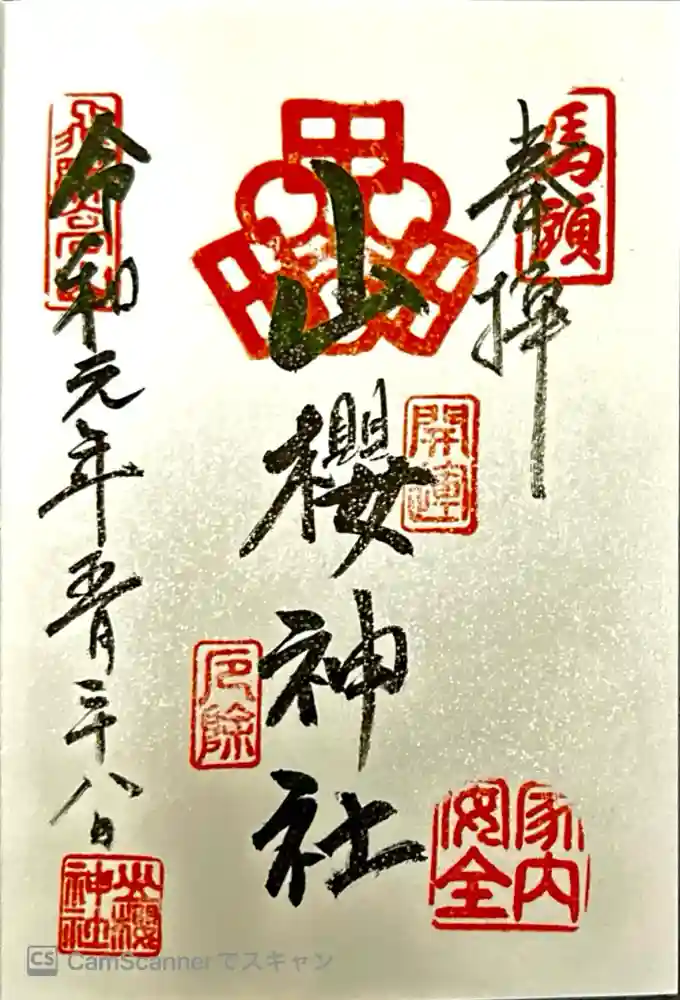 馬頭
奉拝
開運
山櫻神社
厄除
家内
安全
令和元年五月二十八日
山櫻
神社
CS CamScannerでスキャン